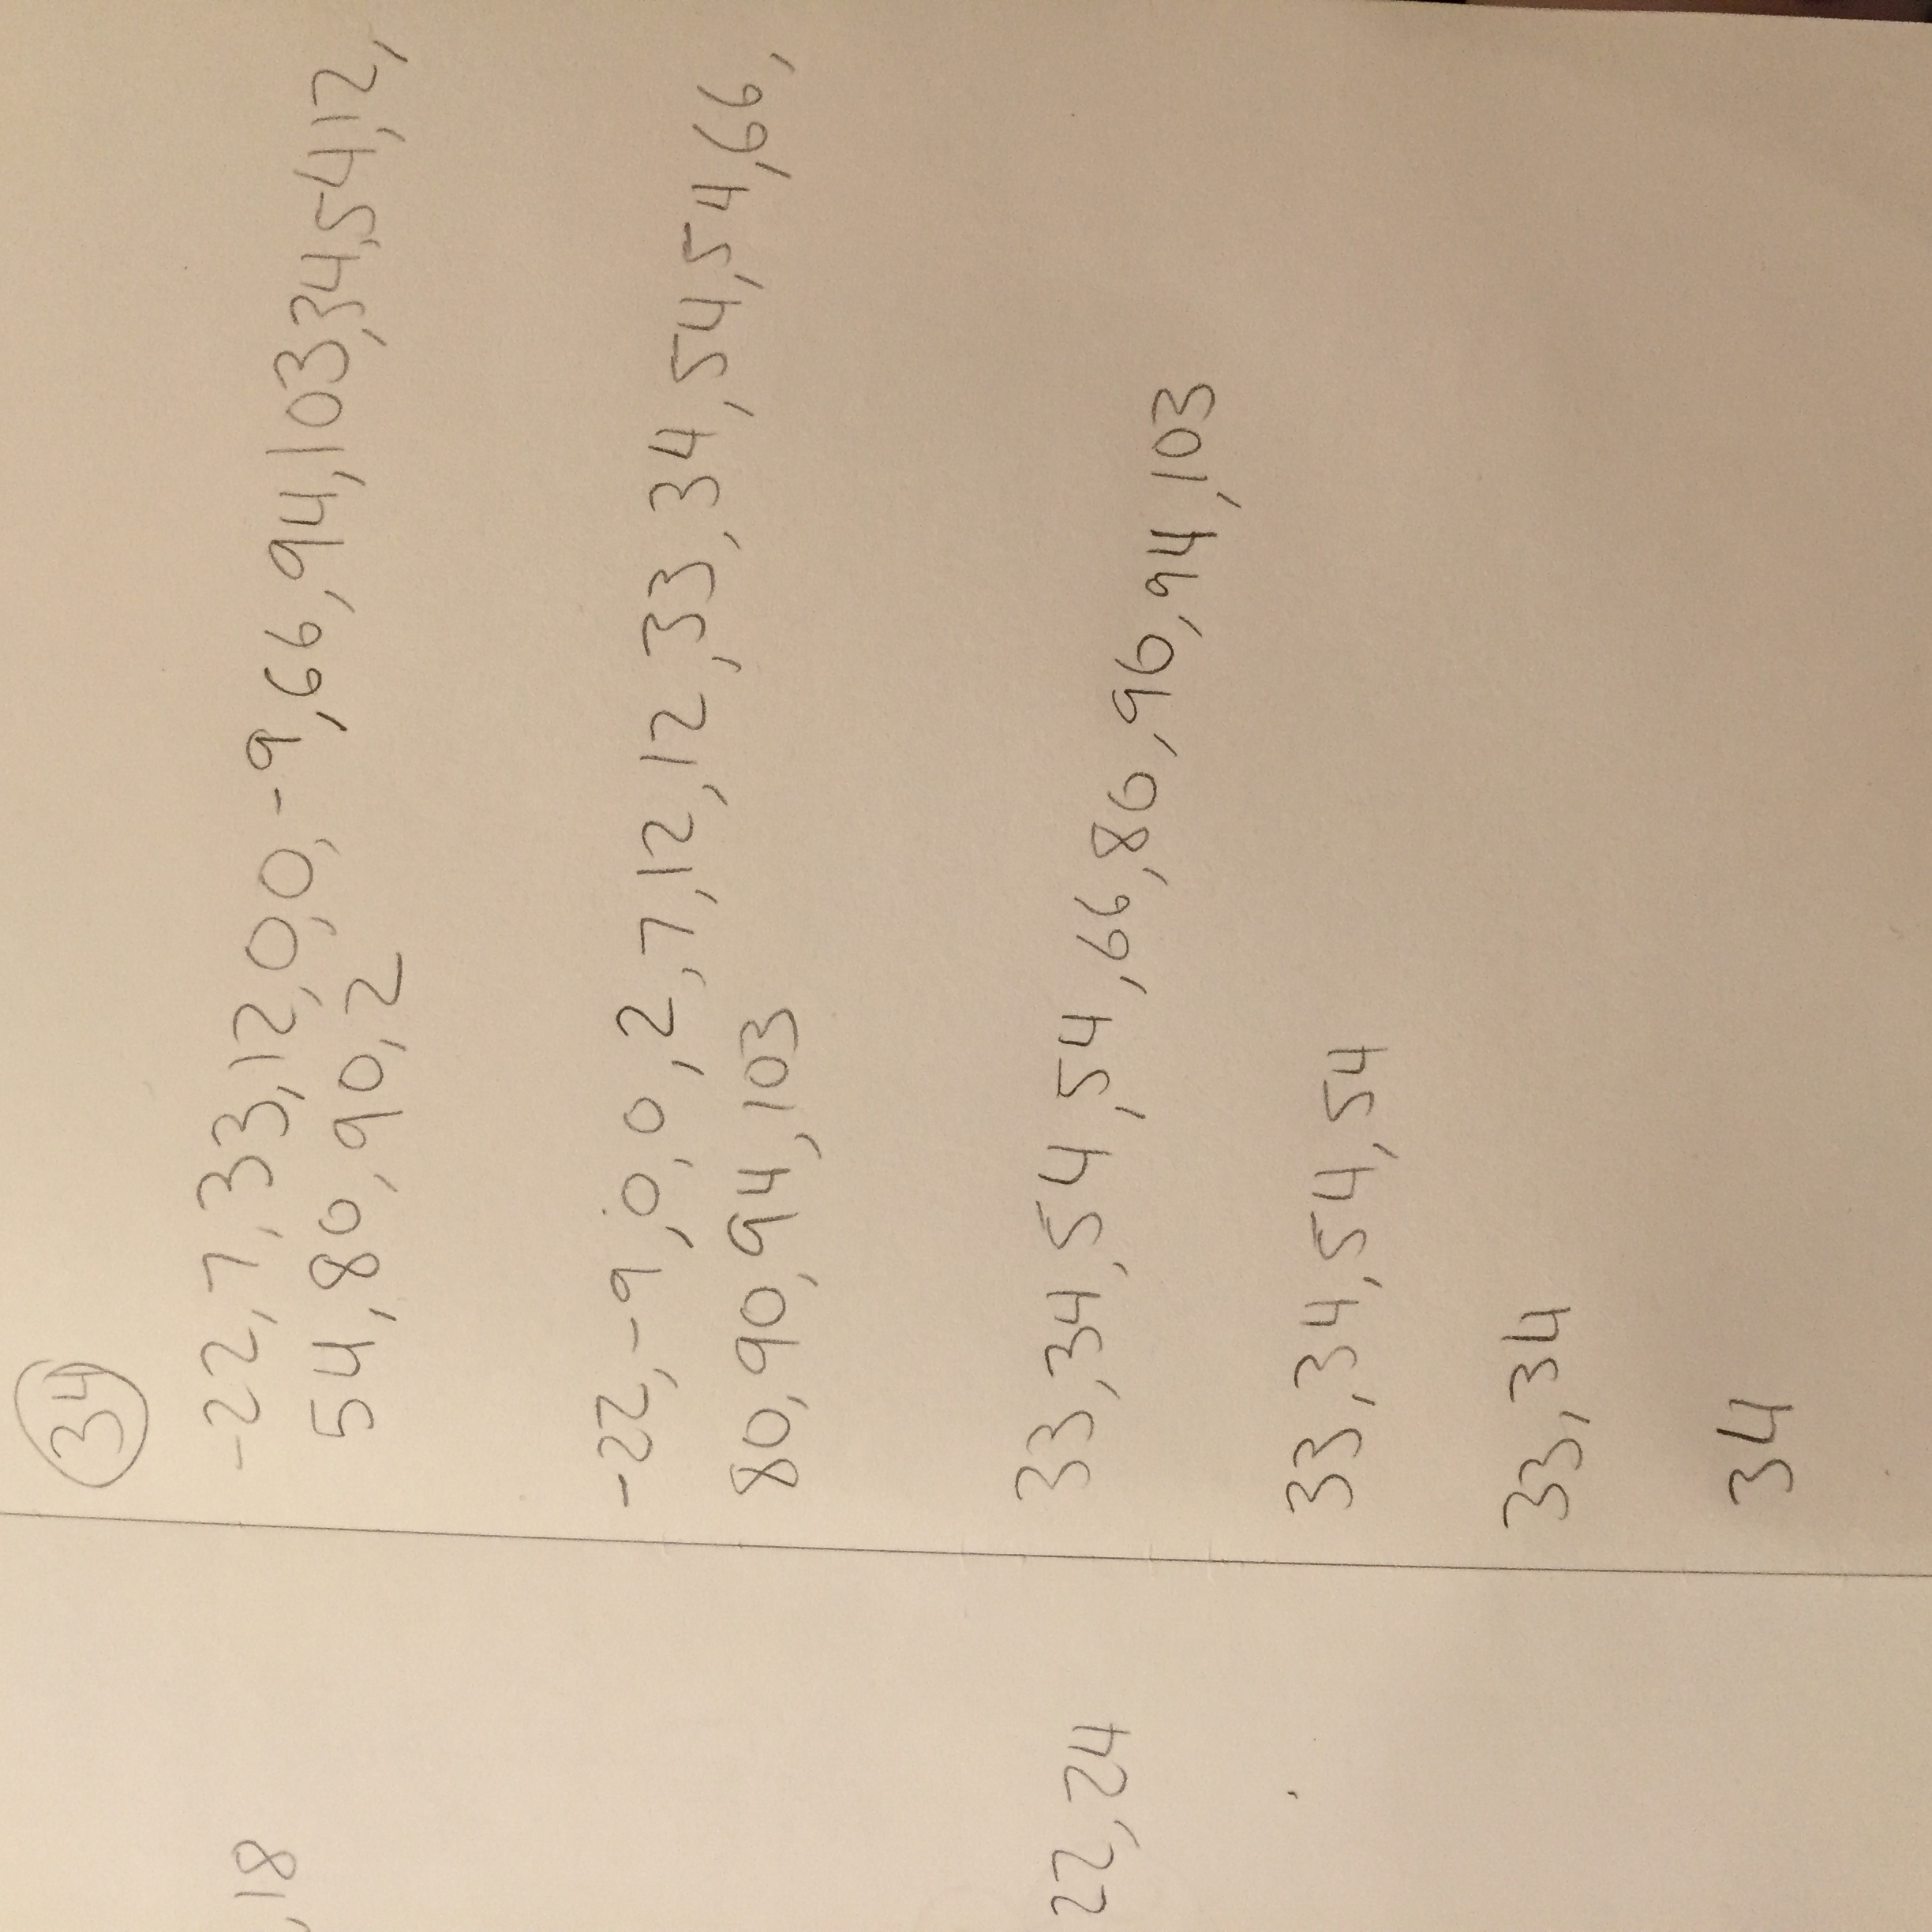 34
,18
-22,7,33,12,0,0,-9,66,94,103,34,54,12,
54,80,90,2
-22,-9,0,0,2,7,12,12,33,34,54,54,66,
80,90,94,103
22,24
33,34,54,54,66,80,90,94,103
33,34,54,54
33,34
34